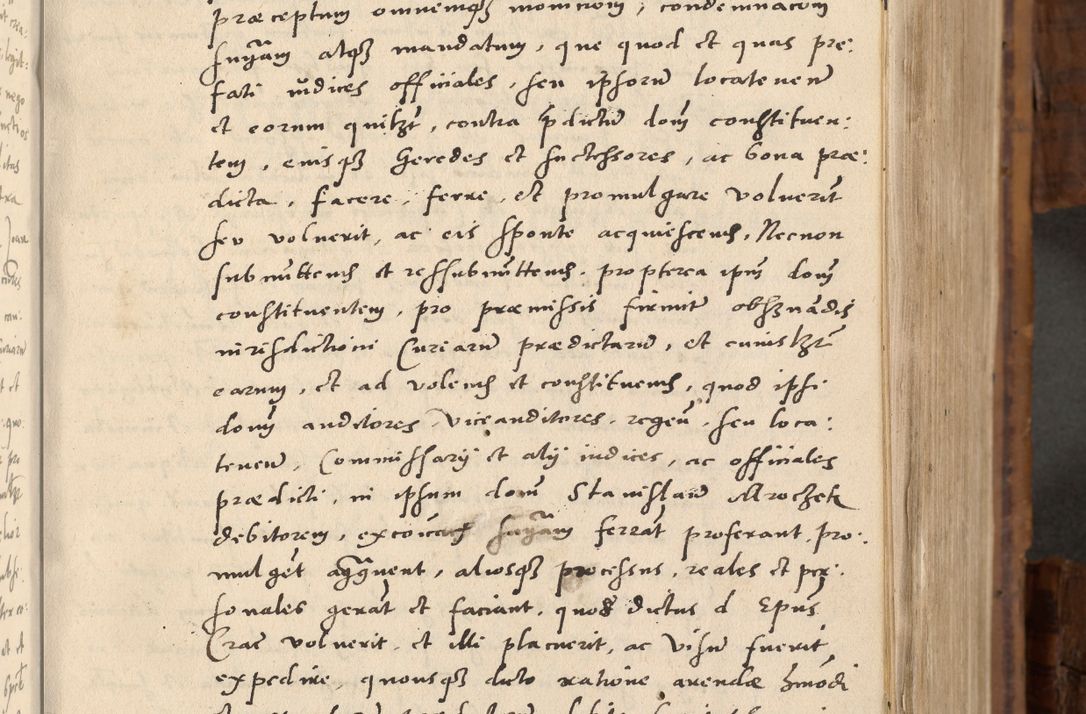 præceptum omnemqꝫ monicrom, condemnacom
snīam atqꝫ mandatum, que quod et quas pre:
fati iudices officiales, seu ipsorū locatenen̄
et eorum quilꝫt, contra p̄dictū dom̄ constituen:
tem, eiusqꝫ heredes et successores, ac bona præ:
dicta, facere, ferre, et promulgare voluerīt
seu voluerit, ac eis sponte acquiescens, Necnon
submittens et ressubmittens, propterea ipm̄ dom̄
constituentem, pro præmissis firmit̄ obseruādis
iurisdictioni Curiarū prædictarū, et cuiuslꝫt
earum, et ad volens et constituens, quod ipsi
dom̄ auditores, Viceauditores, regen̄, seu loca:
tenen̄, Commissarij et alij iudices, ac officiales
prædicti, in ipsum dom̄ Stanislaū Mroczek
debitorem, excoīcaīs snīam ferrāt proferant, pro:
mulgēt aggrauent, aliosqꝫ processus, reales et per:
sonales gerāt et faciant, quos dictus d Epūs
Crac̄ voluerit, et illi placuerit, ac visū fuerit
expedire, quousqꝫ dicto ratione arendæ hmōdi